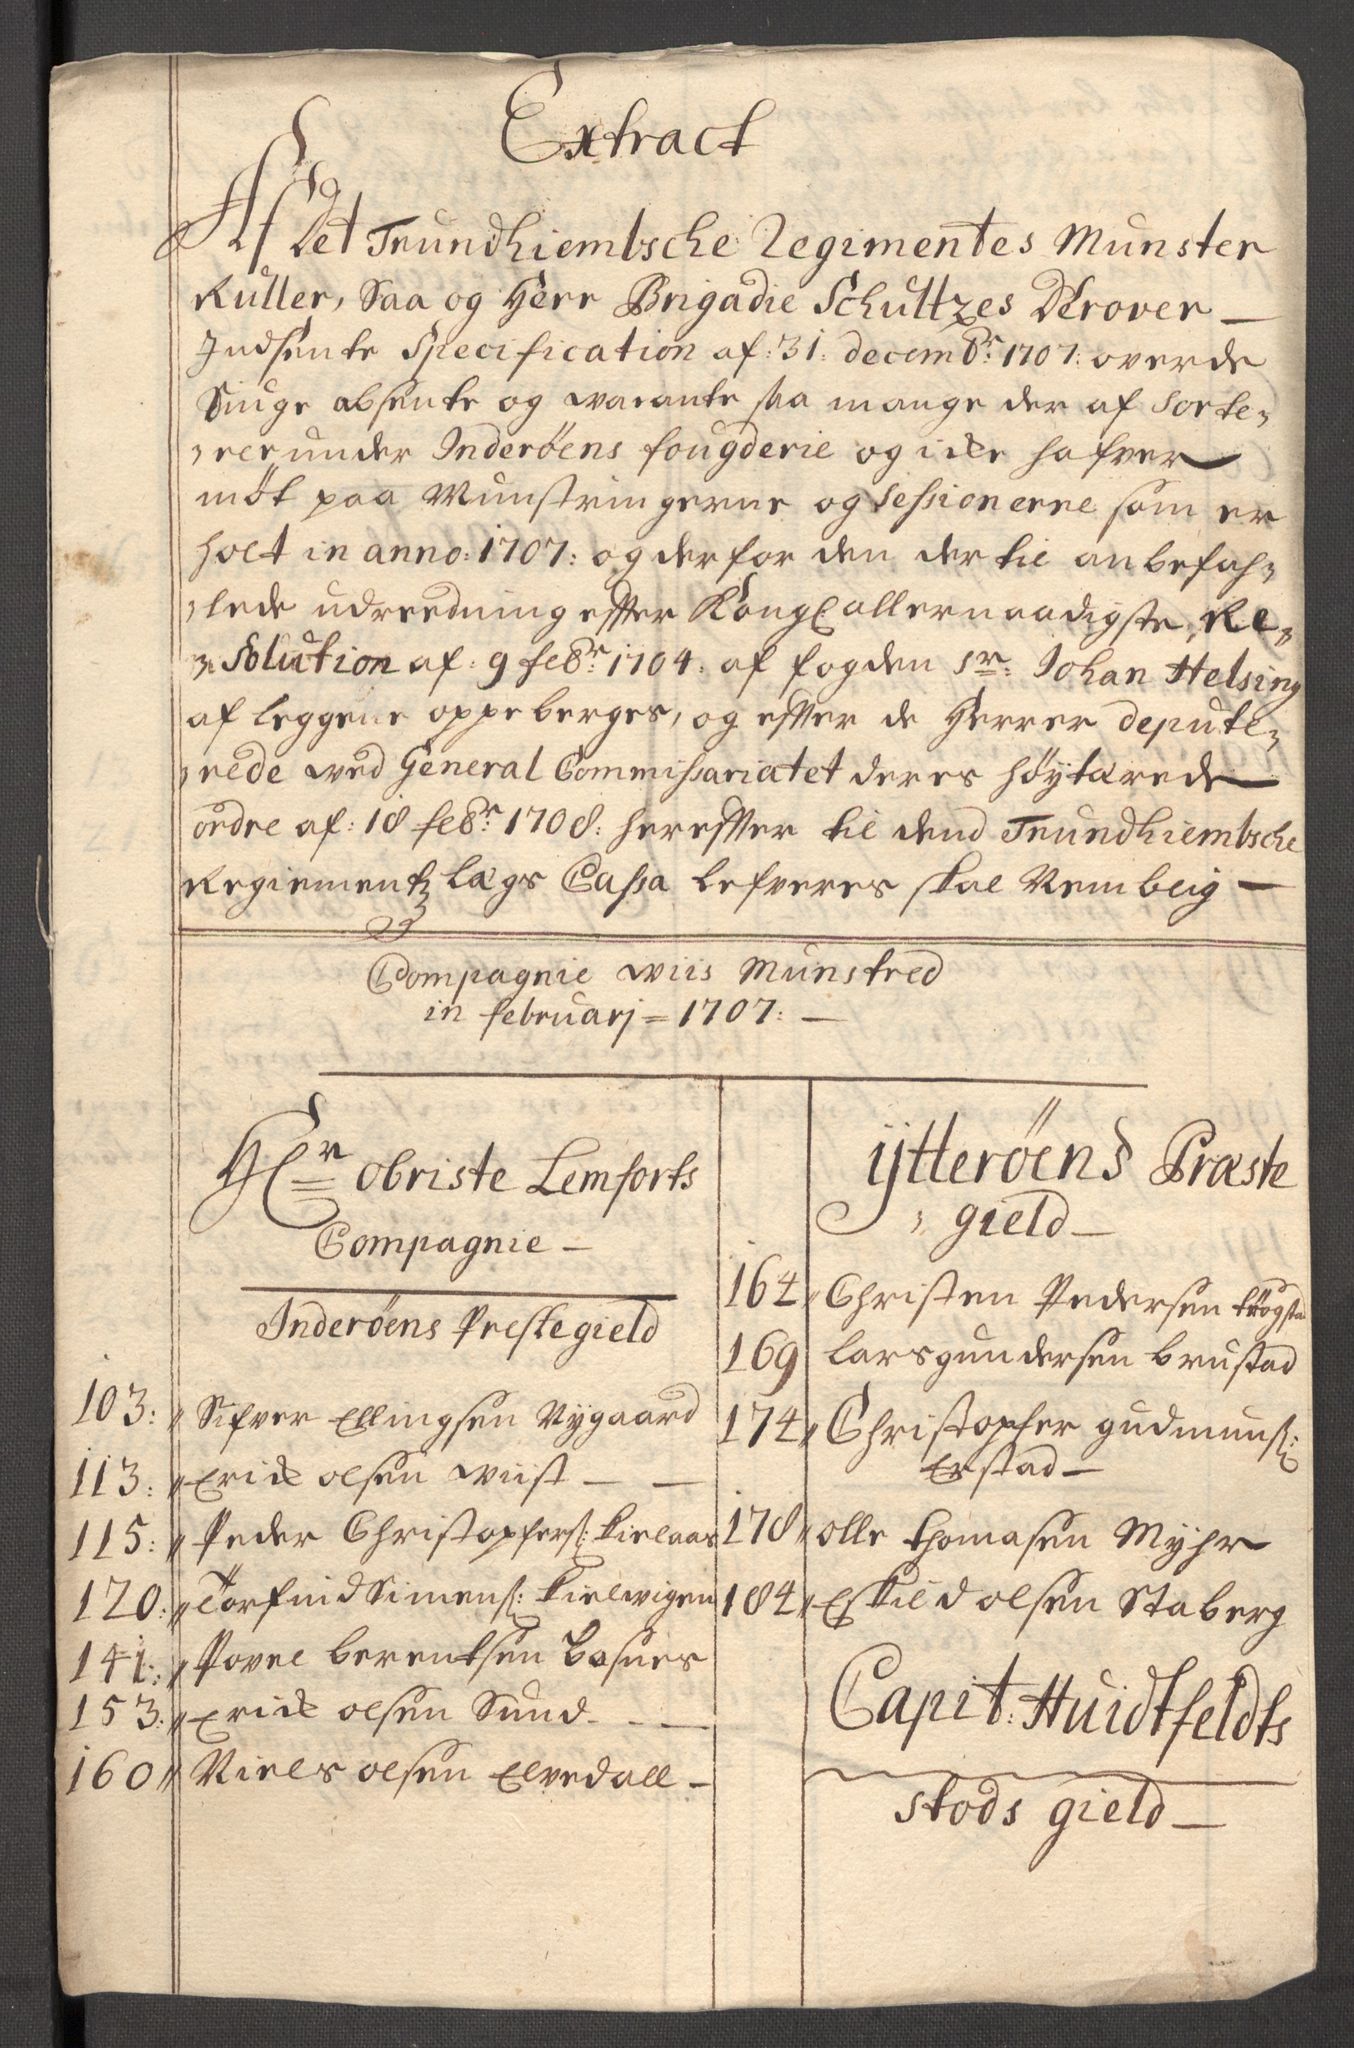 Extract
Af Det Trundhiembsche Regimentes Munster
Ruller, Saa og Herr Brigadie Schultzes Derover
Indsente Specification af: 31: decemb:r 1707: over de
Siuge absente og wacante saa mange der af Sorte-
rer under Inderöens fougderie og icke hafver
möt paa Munstringerne og Sessionerne som er
holt in anno: 1707: og derfor den der til anbefah-
lede udreedning effter Kongl allernaadigste Re-
Solution af: 9 febr: 1704: af fogden Sr: Johan Helsing
af leggene oppeberges, og effter de Herrer depute-
rede wed General Commissariatet deres höytærede
ordre af: 18 febr: 1708: hereffter til dend Trundhiembsche
Regiementz lægs Cassa lefveres skal Nemblig
Compagnie wiis Munstred
in februarj = 1707:
Hr Obriste Lemforts
Compagnie
Inderöens Prestegield
103: Sifver Ellingsen Nygaard
113: Erick olsen Wiist
115: Peder Christophers: Kielaas
120: Torfind Simens: Kielwigen
141: Povel berentsen
153: Erick olsen Sund
160 Niels olsen Elvedall
ijtteröens Præste
gield
164 Christen Pedersen
169 Lars gundersen brustad
174 Christopher gudmuns:
Erstad
178 olle thomasen Myhr
184 Eskild olsen Staberg
Capit: Huidtfeldts
Stods gield